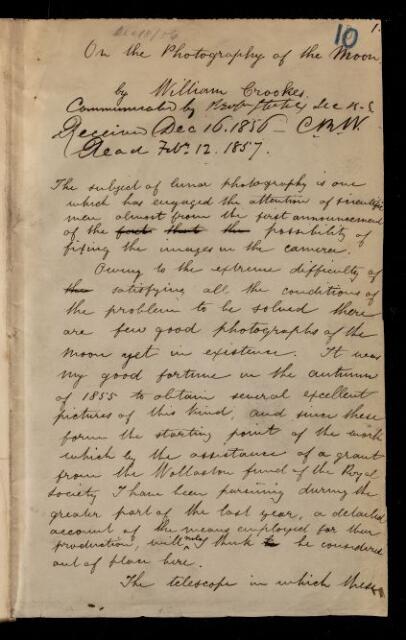 Dec 18/56
10
1.
On the Photography of the Moon
by William Crookes.
Communicated by Prof Stokes Sec R.S
Received Dec 16. 1856 — C.R.W.
Read Feb. 12. 1857.
The subject of lunar photography is one
which has engaged the attention of scientific
men almost from the first announcement
of the fact that the possibility of
fixing the images in the camera.
Owing to the extreme difficulty of
the satisfying all the conditions of
the problem to be solved there
are few good photographs of the
moon yet in existence. It was
my good fortune in the autumn
of 1855 to obtain several excellent
pictures of this kind, and since these
form the starting point of the work
which by the assistance of a grant
from the Wollaston fund of the Royal
Society I have been pursuing during the
greater part of the last year, a detailed
account of the means employed for their
production, will not I think be considered
out of place here.
The telescope in which these